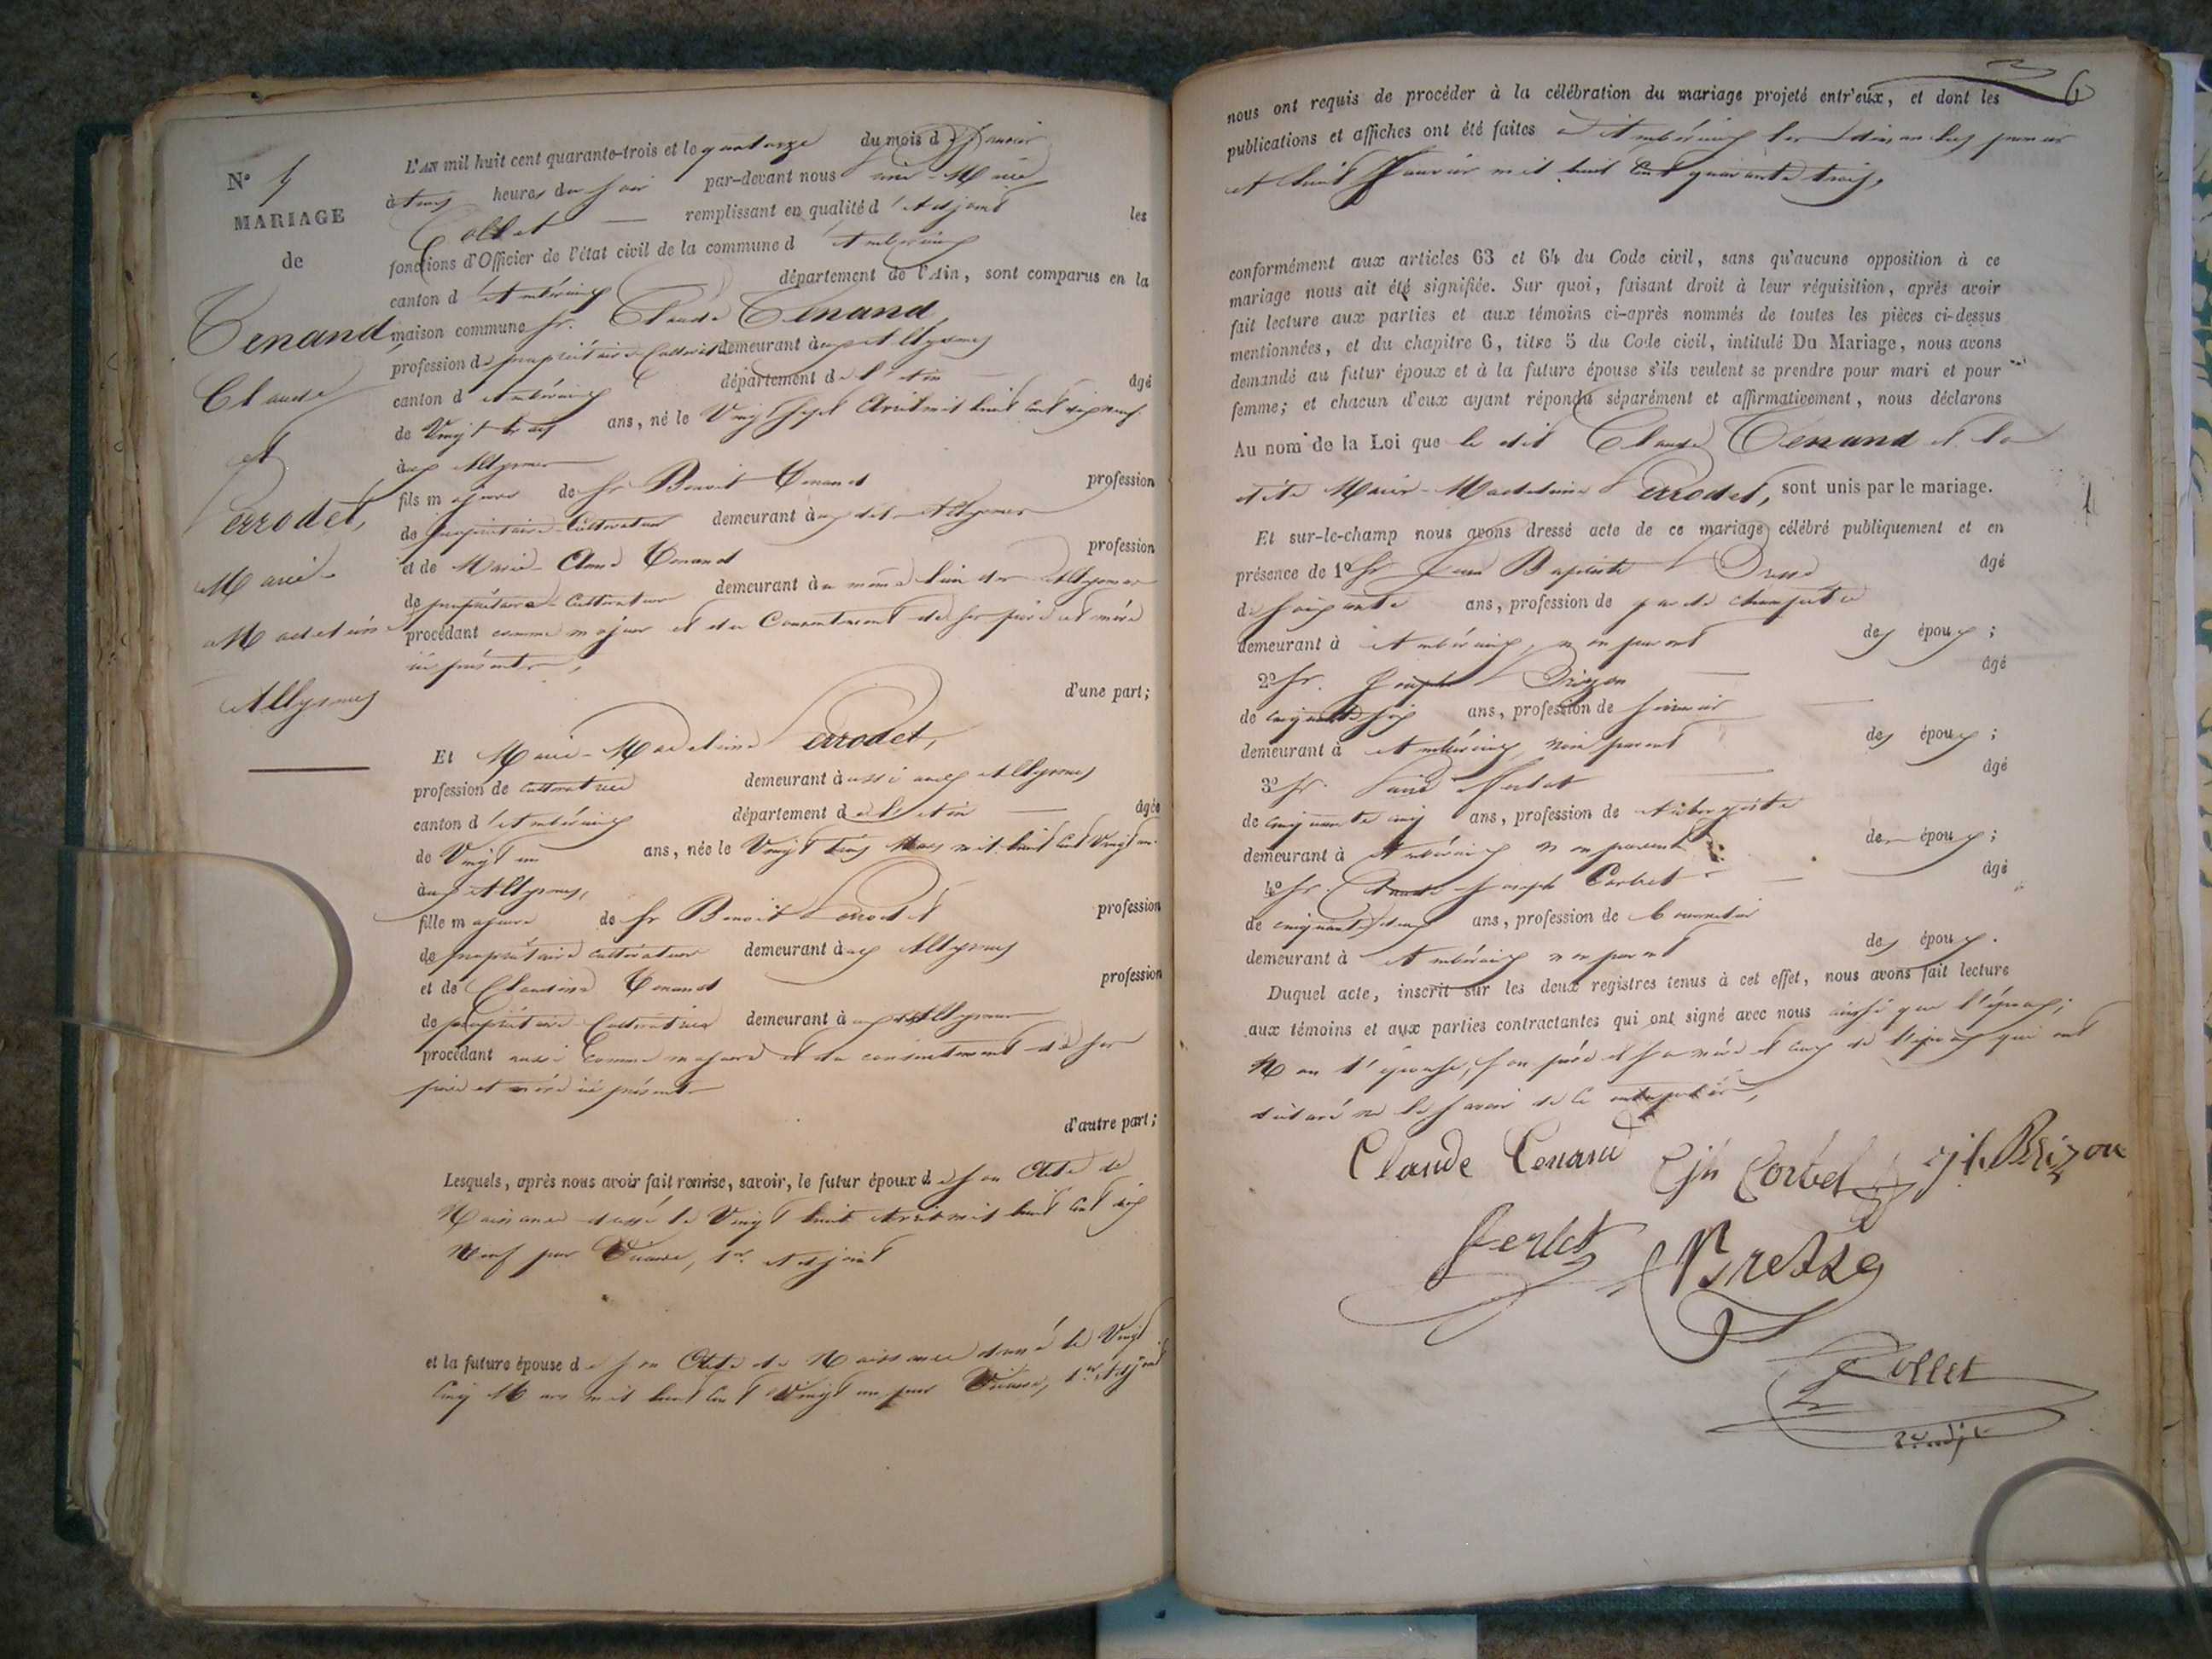 N°
MARIAGE
de
Tenand,
Claude
et
Perrodet,
Marie-
Madeleine
Allymes
L'AN mil huit cent quarante-trois et le quatorze du mois de Janvier
à trois heures du soir par-devant nous Marie
Collet remplissant en qualité d'Adjoint les
fonctions d'Officier de l'état civil de la commune d'Ambérieux
canton d'Ambérieux département de l'Ain, sont comparus en la
maison commune Sr. Claude Tenand,
profession de propriétaire Cultivateur demeurant aux Allymes
canton d'Ambérieux département de l'Ain âgé
de Vingt trois ans, né le Vingt Sept Avril mil huit cent dix neuf
aux Allymes
fils majeur de Sr Benoit Tenand profession
de propriétaire-Cultivateur demeurant aux dits Allymes
et de Marie-Anne Tenand profession
de propriétaire-Cultivateur demeurant au même lieu des Allymes
procédant comme majeur et du Consentement de ses père et mère
ici présents,
d'une part;
Et Marie-Madeleine Perrodet,
profession de cultivatrice demeurant aussi aux Allymes
canton d'Ambérieux département de l'Ain âgée
de Vingt un ans, née le Vingt trois Mars mil huit cent Vingt un
aux Allymes,
fille majeure de Sr Benoit Perrodet profession
de propriétaire cultivateur demeurant aux Allymes
et de Claudine Tenand profession
de propriétaire Cultivatrice demeurant aux dits Allymes
procédant aussi comme majeure et du consentement de ses
père et mère ici présents
d'autre part;
Lesquels, après nous avoir fait remise, savoir, le futur époux de son Acte de
Naissance dressé le Vingt huit Avril mil huit cent dix
Neuf par 1er Adjoint
et la future épouse de son Acte de Naissance donné le Vingt
Cinq Mars mil huit cent Vingt un par 1er Adjoint
6
nous ont requis de procéder à la célébration du mariage projeté entr'eux, et dont les
publications et affiches ont été faites à Ambérieux les dimanches premier
et huit Janvier mil huit cent quarante trois,
conformément aux articles 63 et 64 du Code civil, sans qu'aucune opposition à ce
mariage nous ait été signifiée. Sur quoi, faisant droit à leur réquisition, après avoir
fait lecture aux parties et aux témoins ci-après nommés de toutes les pièces ci-dessus
mentionnées, et du chapitre 6, titre 5 du Code civil, intitulé Du Mariage, nous avons
demandé au futur époux et à la future épouse s'ils veulent se prendre pour mari et pour
femme; et chacun d'eux ayant répondu séparément et affirmativement, nous déclarons
Au nom de la Loi que le dit Claude Tenand et la
dite Marie-Madeleine Perrodet, sont unis par le mariage.
Et sur-le-champ nous avons dressé acte de ce mariage célébré publiquement et en
présence de 1° Sr Jean Baptiste Bresse âgé
de Soixante ans, profession de garde champêtre
demeurant à Ambérieux, non parent des époux;
2° Sr. Joseph Brizon âgé
de cinquante six ans, profession de
demeurant à Ambérieux, non parent des époux;
3° Sr. Ferlet âgé
de cinquante cinq ans, profession de Aubergiste
demeurant à Ambérieux non parent des époux;
4° Sr. Claude Joseph Corbet âgé
de cinquante deux ans, profession de
demeurant à Ambérieux non parent des époux.
Duquel acte, inscrit sur les deux registres tenus à cet effet, nous avons fait lecture
aux témoins et aux parties contractantes qui ont signé avec nous ainsi que l'époux;
Non l'épouse, son père et sa mère et ceux de l'époux qui ont
déclaré ne le savoir de ce interpellés,
Claude Tenand Cjh Corbet jh. Brizon
Ferlet Bresse
Collet
2e adj